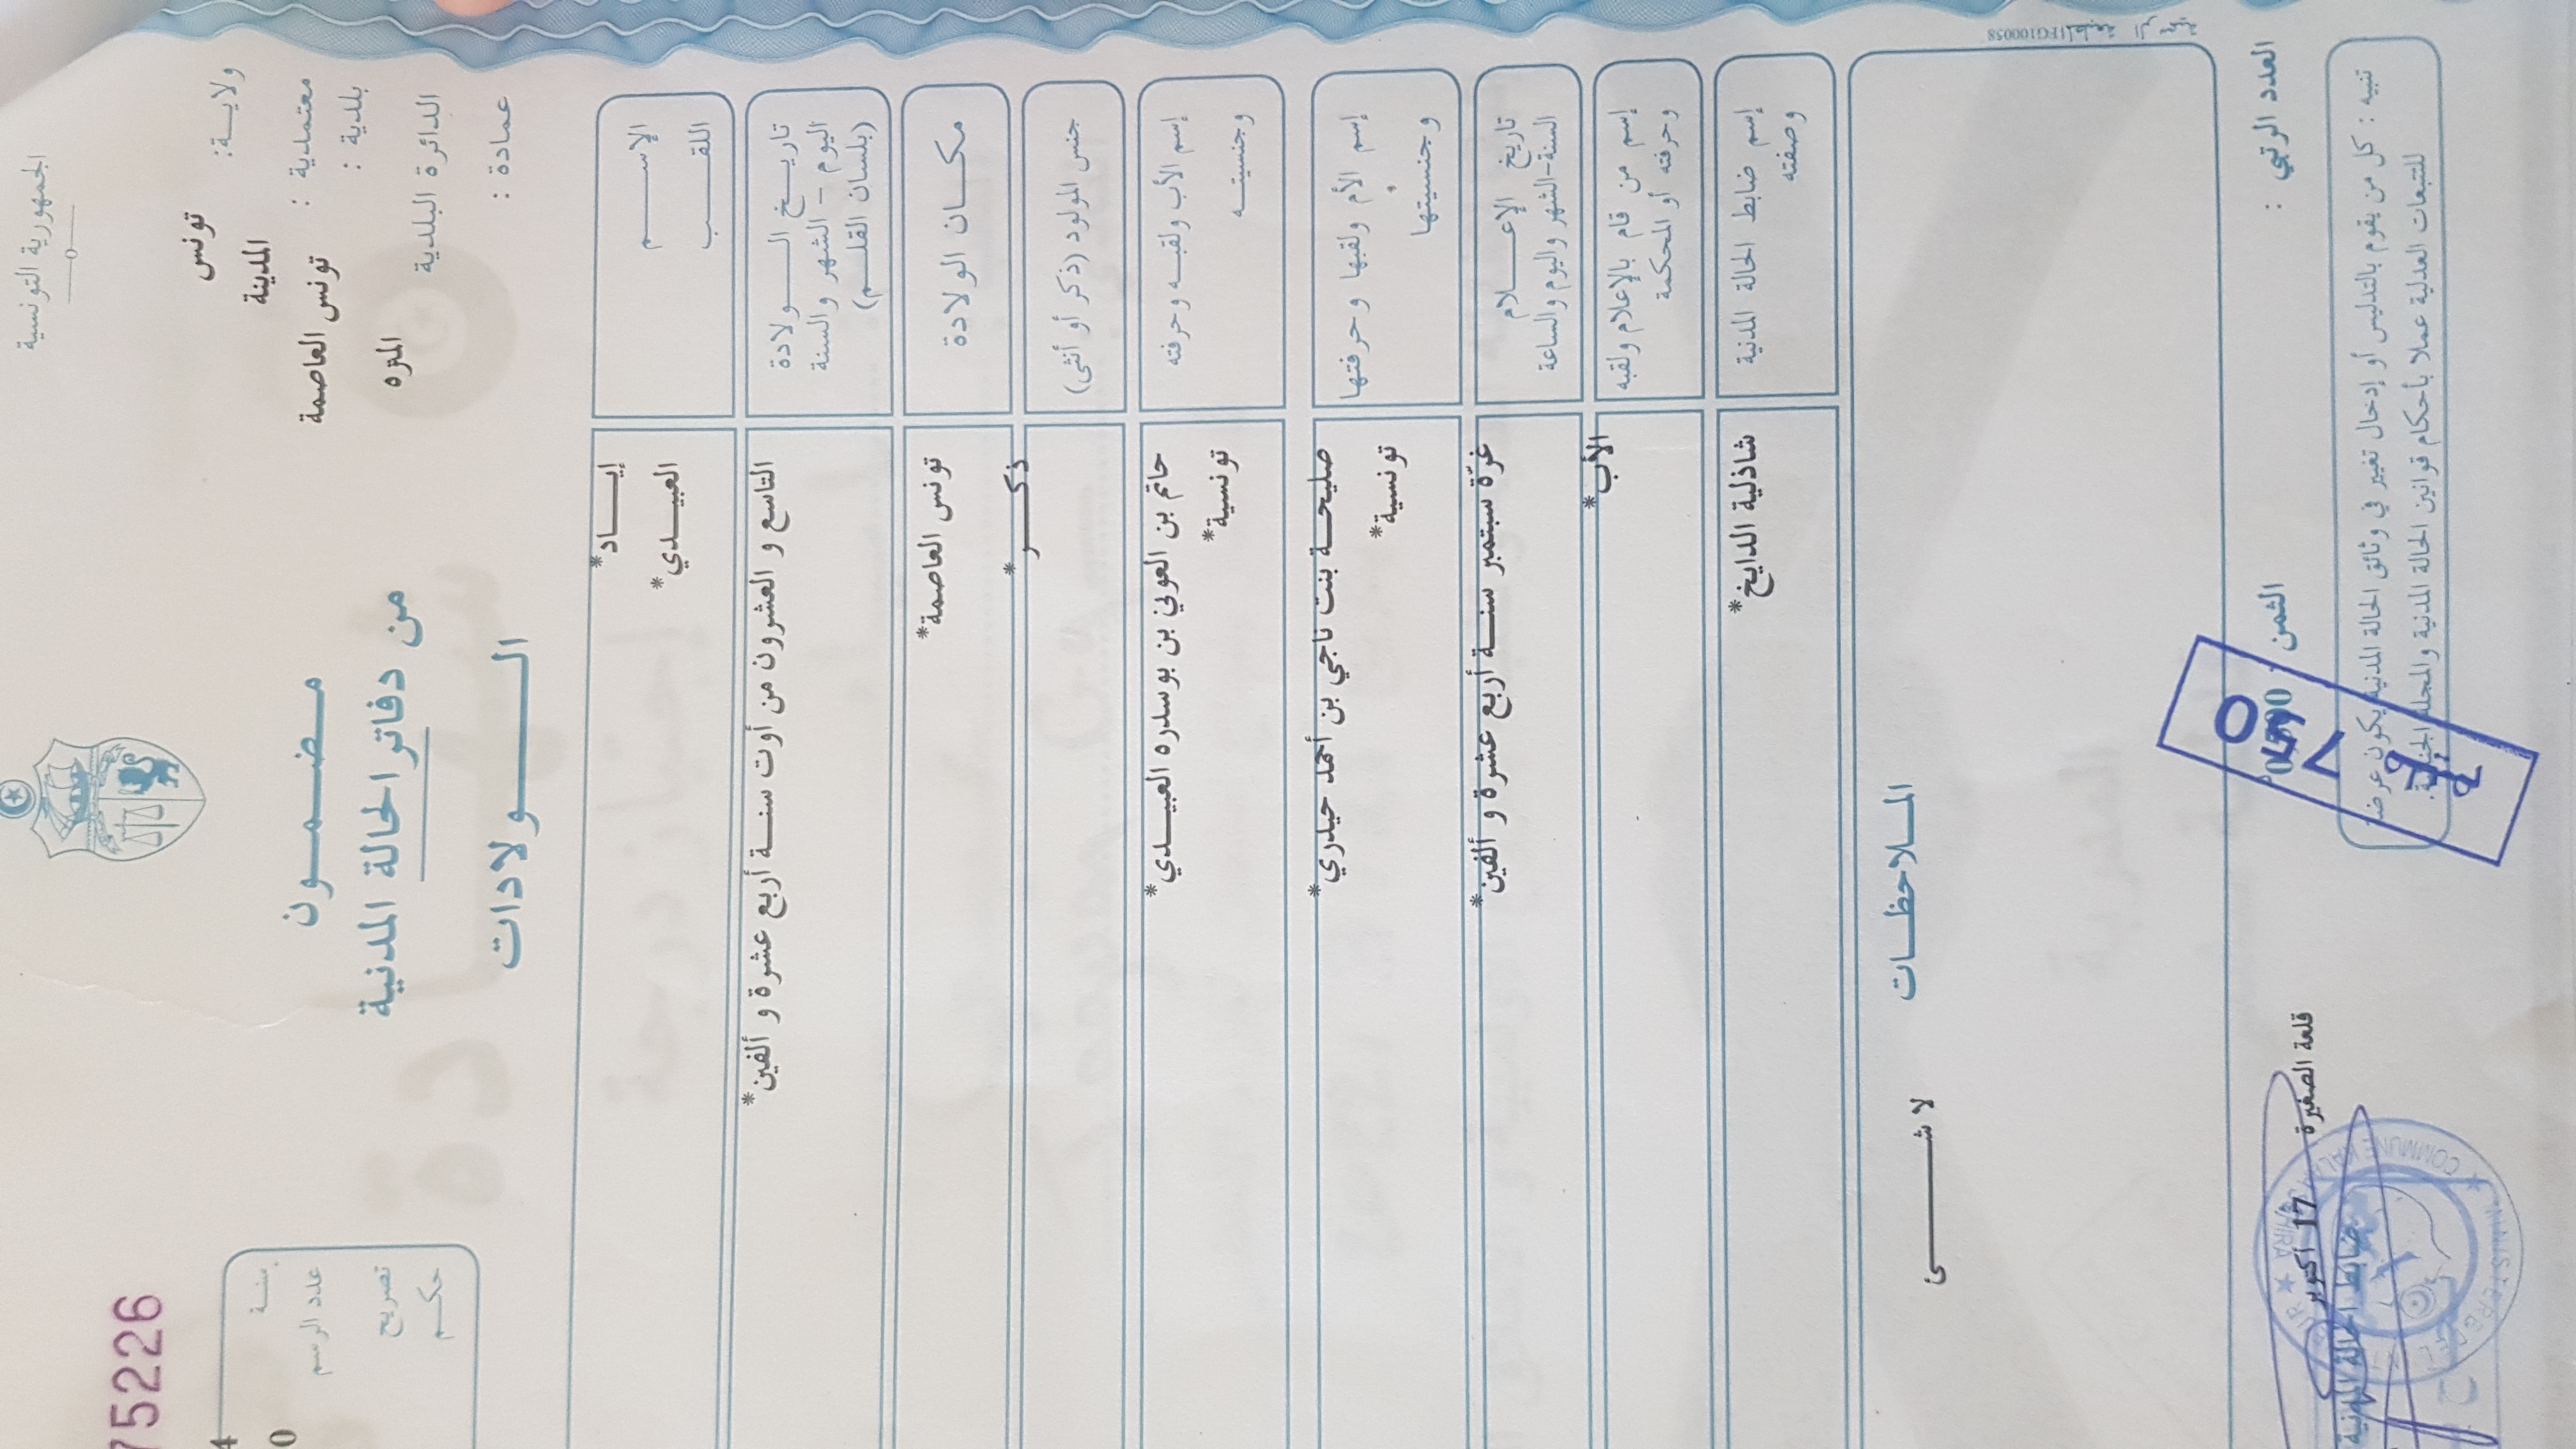 الجمهورية التونسية
ولايـــة: تونس
المدينة
معتمدية :
بلدية : تونس العاصمة
الدائرة البلدية المنزه
عمادة :
مـضـمـــون
من دفاتر الحالة المدنية
الـــولادات
75226
سنة
عدد الرسم
تصريح
حكـم
الإســـم إيـــاد*
اللقـــب العبيــدي*
تاريـــخ الـــولادة
اليوم - الشهر والسنة
(بلسان القلـم)
التاسع و العشرون من أوت سنـة أربع عشرة و ألفين*
مكــان الولادة تونس العاصمة*
جنس المولود (ذكر أو أنثى) ذكـــر*
إسم الأب ولقبـه وحرفته حاتم بن العوني بن بوسدره العبيــدي*
وجنسيتـــه تونسية*
إسم الأم ولقبها وحرفتها صليحـة بنت ناجي بن أحمد حيدري*
وجنسيتها تونسية*
تاريخ الإعـــلام
السنة-الشهر واليوم والساعة
غرّة سبتمبر سنـة أربع عشرة و ألفين*
إسم من قام بالإعلام ولقبه الأب*
وحرفته أو المحكمة
إسم ضابط الحالة المدنية شاذلية الدايخ*
وصفته
المـلاحظــات
لا شـــــئ
العدد الرتبي :
الثمن
قلعة الصغيرة 17 أكتوبر
ضابط الحالة المدنية
تنبيه : كل من يقوم بالتدليس أو إدخال تغيير في وثائق الحالة المدنية يكون عرضة
للتتبعات العدلية عملا بأحكام قوانين الحالة المدنية والمجلة الجنائية.